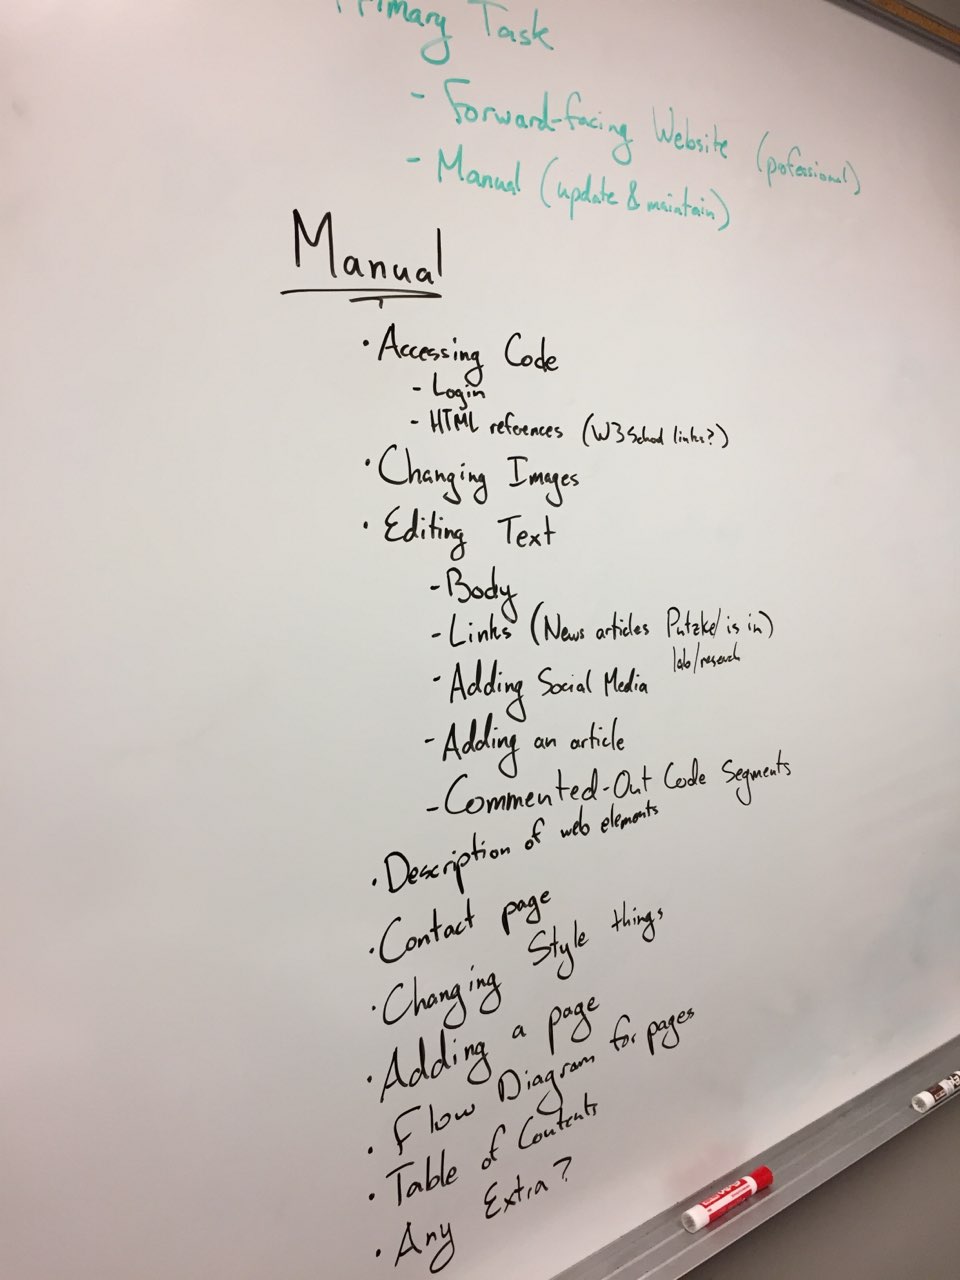 Primary Task
- Forward-facing Website (pofessional)
- Manual (update & maintain)
Manual
· Accessing Code
- Login
- HTML references (W3School links?)
· Changing Images
· Editing Text
- Body
- Links (News articles Putzke/ is in)
lab/research
- Adding Social Media
- Adding an article
- Commented-Out Code Segments
· Description of web elements
· Contact page
· Changing Style things
· Adding a page
· Flow Diagram for pages
· Table of Contents
· Any Extra?